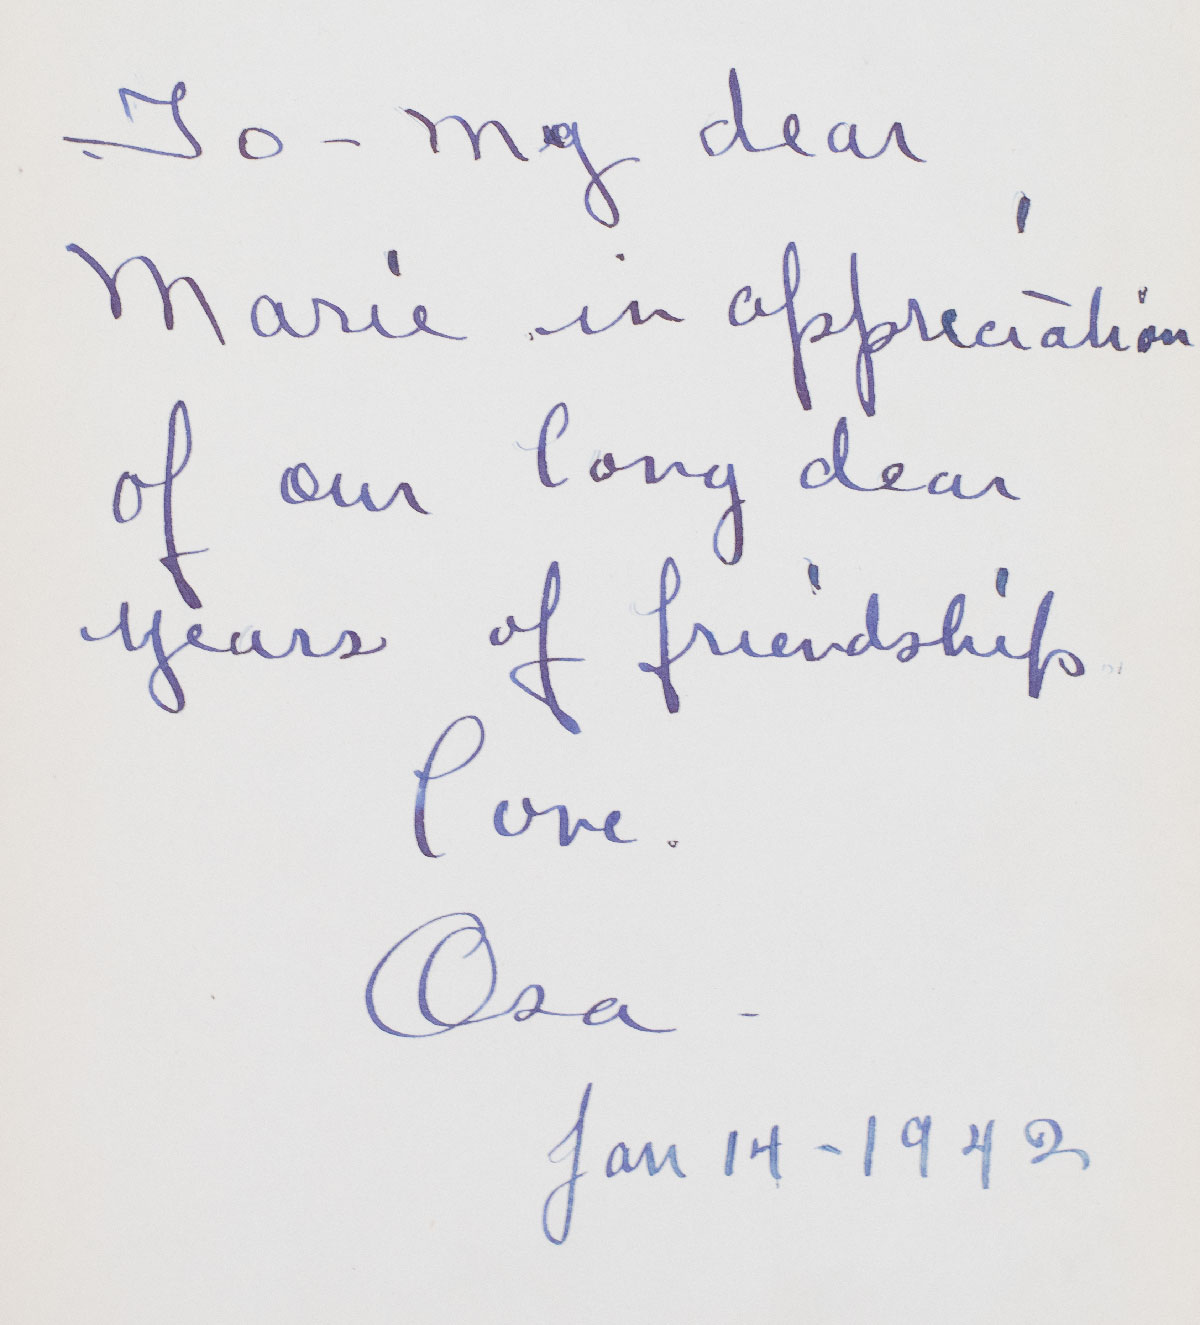 To - my dear
Marie in appreciation
of our long dear
years of friendship
Love.
Osa -
Jan 14 - 1942